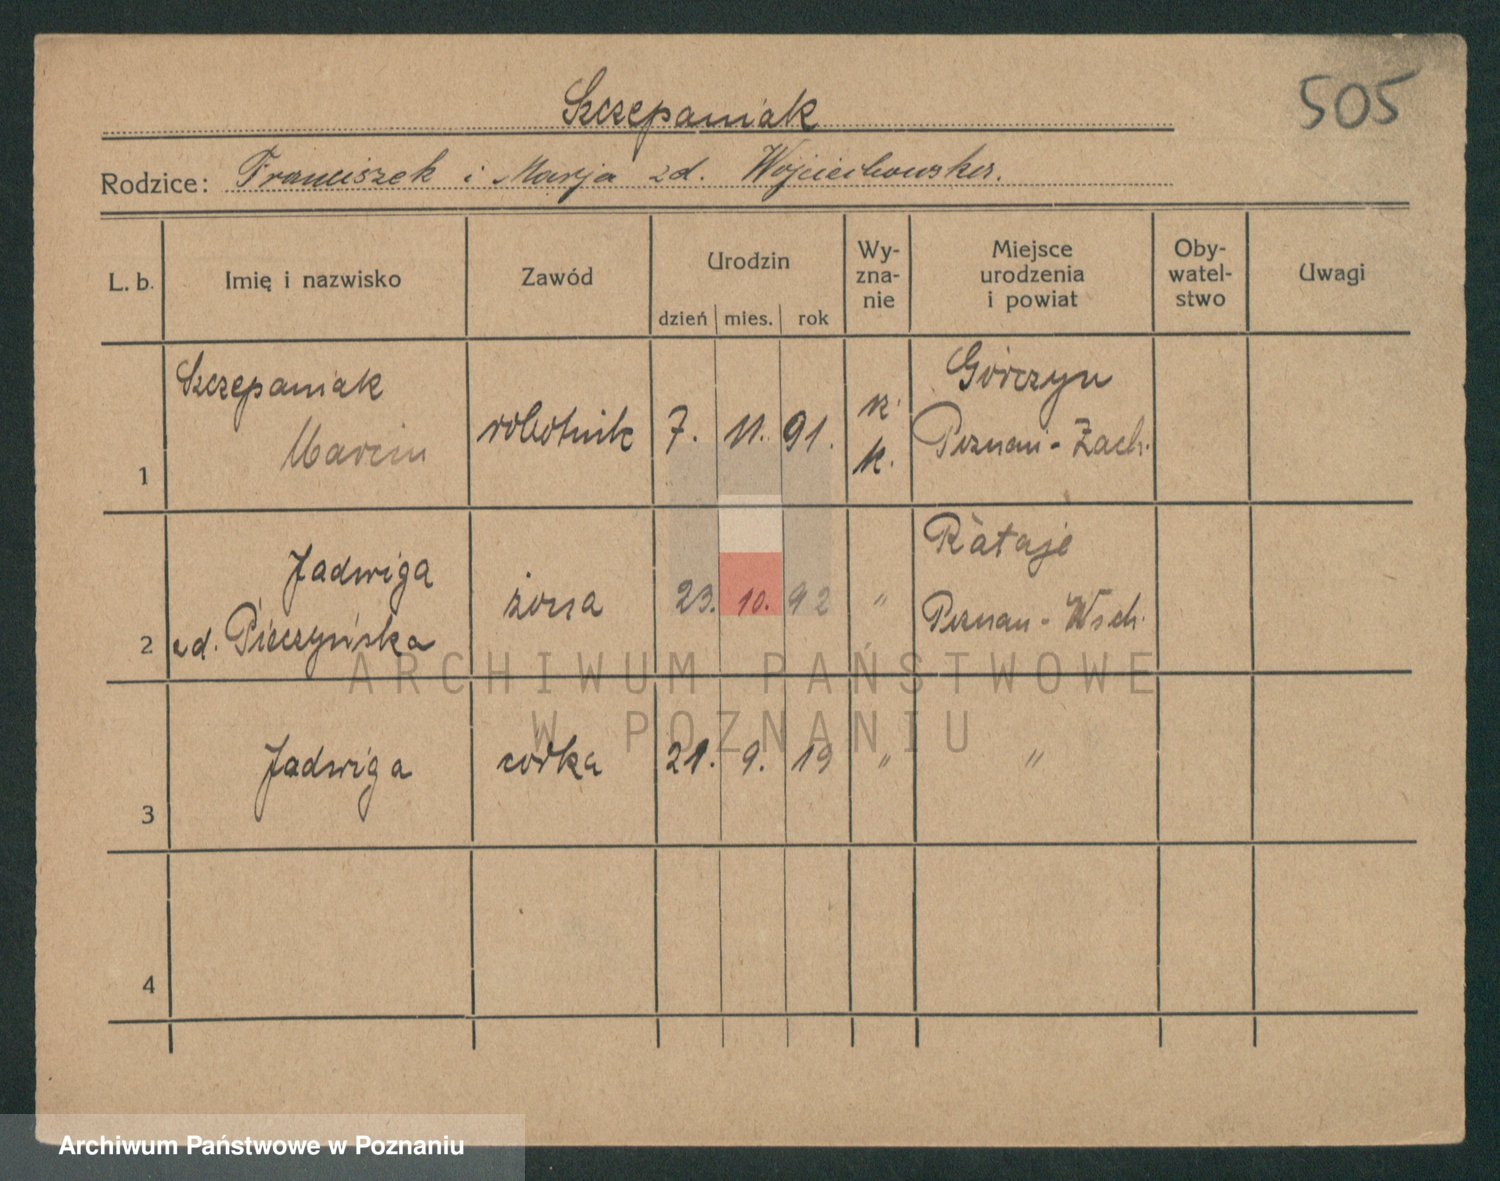 505
Szczepaniak
Rodzice: Franciszek i Marja zd. Wojciechowska.
L. b. Imię i nazwisko Zawód Urodzin dzień mies. rok Wy-zna-nie Miejsce urodzenia i powiat Oby-watel-stwo Uwagi
Szczepaniak Górczyn
1 Marcin robotnik 7. 11. 91. r. k. Poznań-Zach.
Jadwiga Rataje
2 zd. Pieczyńska żona 23. 10. 92 " Poznań-Wsch.
3 Jadwiga córka 21. 9. 19 " "
4
ARCHIWUM PAŃSTWOWE
W POZNANIU
Archiwum Państwowe w Poznaniu